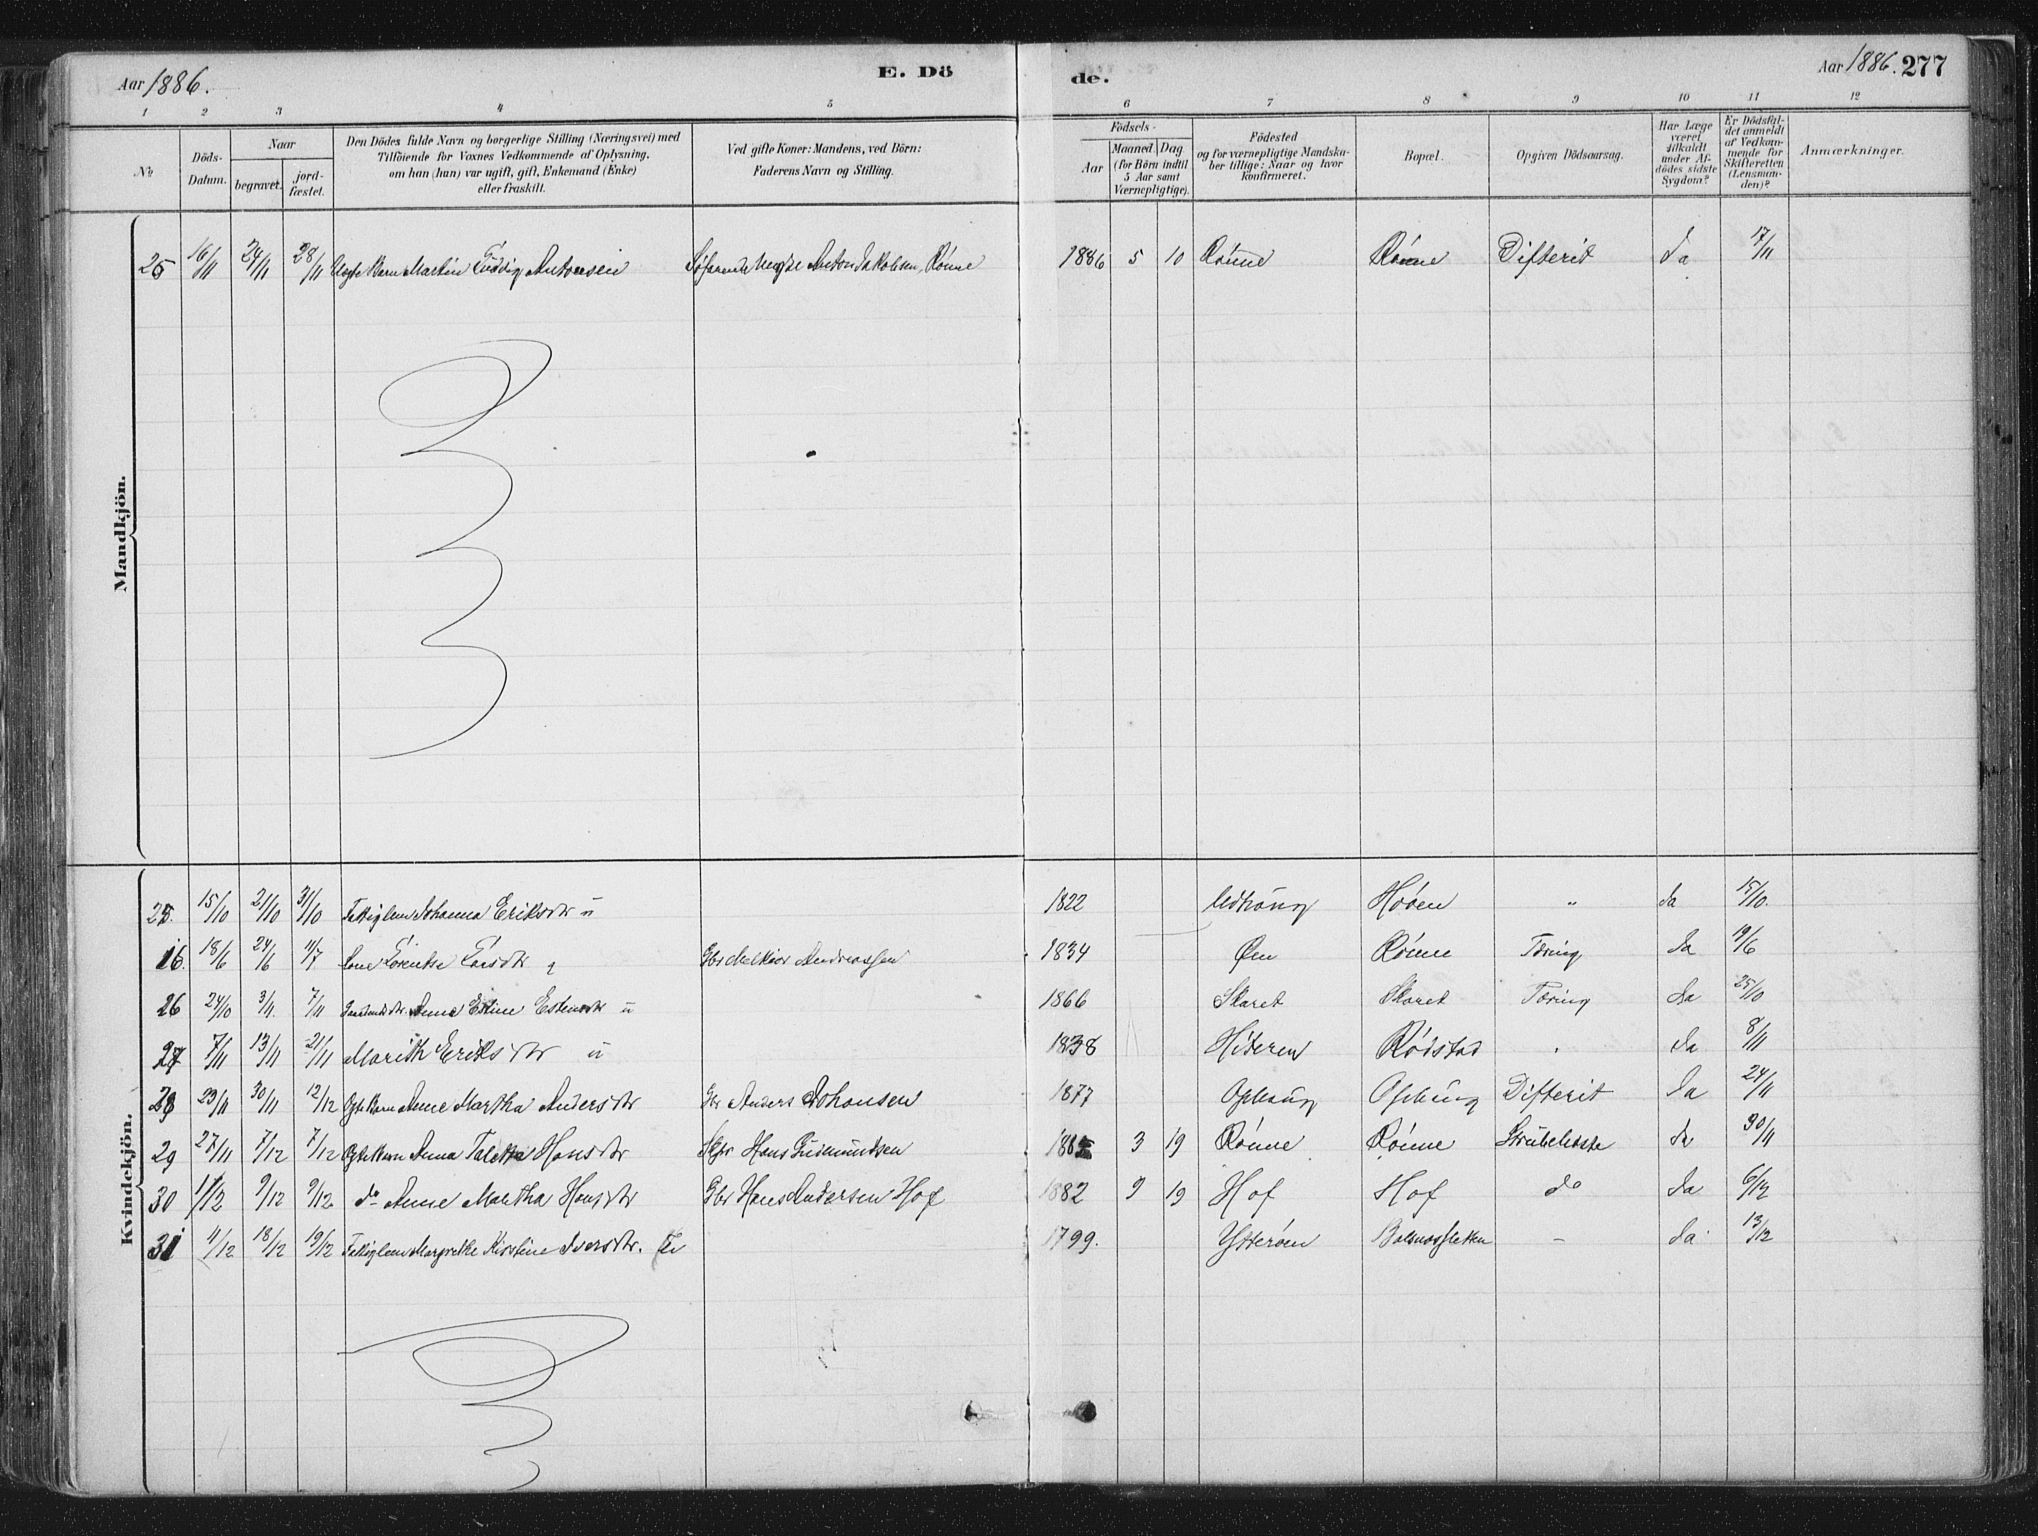 Aar 1886.
E. Dö
de.
Aar 1886. 277
1 2 3 4 5 6 7 8 9 10 11 12
No
Döds-Datum.
Naar
begravet.
jord-fæstet.
Den Dödes fulde Navn og borgerlige Stilling (Næringsvei) med Tilföiende for Voxnes Vedkommende af Oplysning, om han (hun) var ugift, gift, Enkemand (Enke) eller fraskilt.
Ved gifte Koner: Mandens, ved Börn: Faderens Navn og Stilling.
Födsels-
Aar
Maaned. Dag
(for Börn indtil 5 Aar samt Værnepligtige).
Födested og for værnepligtige Mandska-ber tillige: Naar og hvor konfirmeret.
Bopæl.
Opgiven Dödsaarsag.
Har Læge været tilkaldt under Af-dödes sidste Sygdom?
Er Dödsfal-det anmeldt af Vedkom-mende for Skifteretten (Lensman-den)?
Anmærkninger.
Mandkjön.
25 16/11 24/11 28/11 Uægte Barn Martin Antonsen Anton Jakobsen, Rönne 1886 5 10 Rönne Rönne Difterit Ja 17/11
Kvindekjön.
25. 15/10 21/10 31/10 Johanna Eriksdtr u 1822 Hööen " Ja 15/10.
16. 18/6 24/6 11/7 Larsdtr Gbr Melkior Andreassen 1834 Øen Rönne Tæring Ja 19/6
26 24/10 3/11 7/11 Anne Estine Estensdtr u 1866 Skaret Skaret Tæring Ja 25/10
27 7/11 13/11 21/11 Marith Eriksdtr u 1838 Hiteren Rödstad " Ja 8/11
28 23/11 30/11 12/12 Ægte Barn Anne Martha Andersdtr Gbr Anders Johansen 1877 Ophaug Ophaug Difterit Ja 24/11
29 27/11 7/12 7/12 Ægte Barn Anna Hansdtr Hans Gudmundsen 3 19 Rönne Rönne Strubehoste Ja 30/11
30 1/12 9/12 9/12 do Anne Martha Hansdtr Gbr Hans Andersen Hof 1882 9 19 Hof Hof do Ja 6/12
31 11/12 18/12 19/12 Margrethe Kirstine Iversdtr. 1799. Ytterøen - Ja 13/12